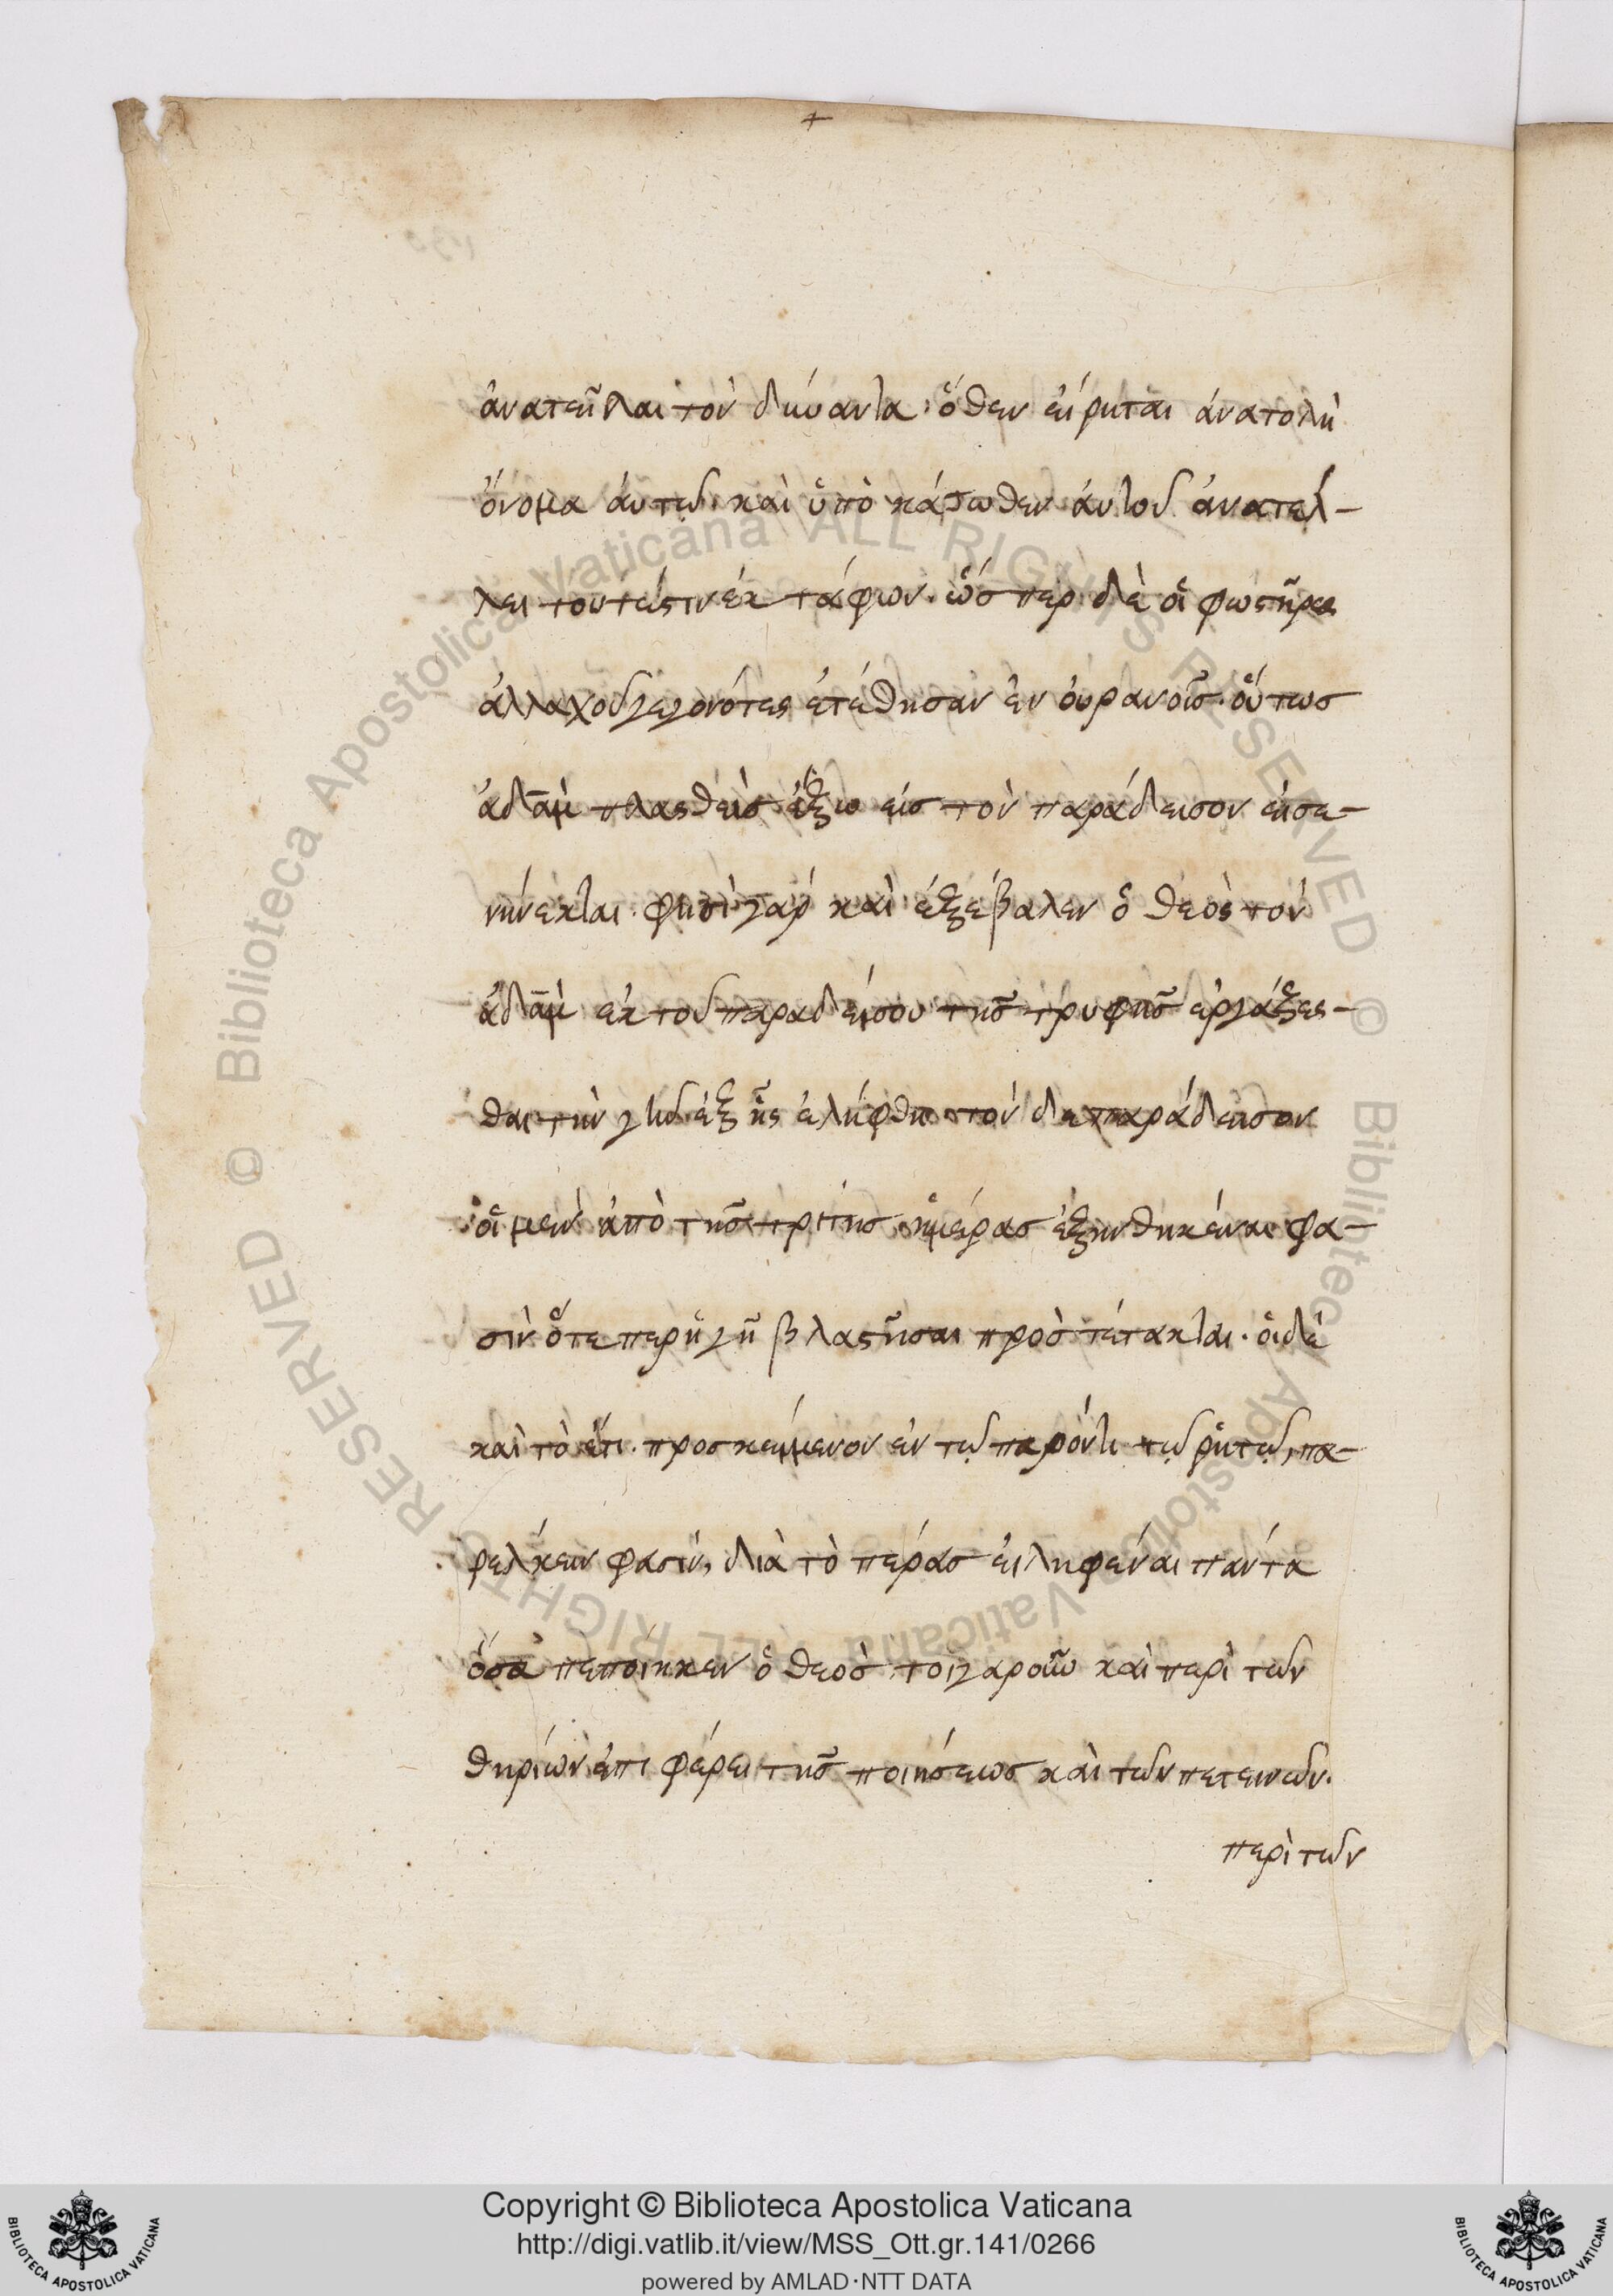 ἀνατεῖλαι τὸν δύναντα· ὅθεν εἴρηται ἀνατολὴ
ὄνομα ἀυτῷ· καὶ ὑπὸ κάτωθεν ἀυτοῦ ἀνατέλ-
λει τουτέστιν ἐκ τάφων. ὥσπερ δὲ οἱ φωστῆρες
ἀλλαχοῦ γεγονότες ἐτέθησαν ἐν ὀυρανοῖς. οὕτως
ἀδὰμ πλασθεὶς ἔξω εἰς τὸν παράδεισον εἰσε-
νήνεκται. φησὶ γάρ καὶ ἐξέβαλεν ὁ θεὸς τὸν
ἀδὰμ ἐκ τοῦ παραδείσου τῆς τρυφῆς ἐργάζεσ-
θαι τὴν γῆν ἐξ ἧς ἐλήφθη. τὸν δε παράδεισον
οἱ μεν ἀπὸ τῆς τρίτης ἡμέρας ἐξηνθηκέναι φα-
σὶν ὅτε περ ἡ γῆ βλαστῆσαι προστέτακται. οἱ δὲ
καὶ τὸ ἔτι. προσκείμενον ἐν τῷ παρόντι τῷ ῥητῷ, πα-
ρέλκειν φασίν, διὰ τὸ πέρας εἰληφέναι πάντα
ὅσα πεποίηκεν ὁ θεος τοιγαροῦν καὶ περὶ τῶν
θηρίων ἐπιφέρει τῆς ποιήσεως καὶ τῶν πετεινῶν.
περὶ τῶν
Copyright © Biblioteca Apostolica Vaticana
http://digi.vatlib.it/view/MSS_Ott.gr.141/0266
powered by AMLAD·NTT DATA
BIBLIOTECA APOSTOLICA VATICANA
BIBLIOTECA APOSTOLICA VATICANA
© Biblioteca Apostolica Vaticana ALL RIGHTS RESERVED © Biblioteca Apostolica Vaticana ALL RIGHTS RESERVED